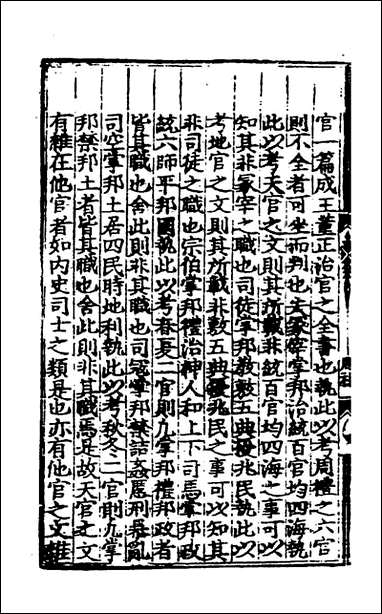 官一篇成王董正治官之全書也執此以考周禮之六官
則不全者可坐而判也夫冢宰掌邦治統百官均四海執
此以考天官之文則其所載非統百官均四海之事可以
知其非冢宰之職也司徒掌邦教敷五典擾兆民執此以
考地官之文則其所載非敷五典擾兆民之事可以知其
非司徒之職也宗伯掌邦禮治神人和上下司馬掌邦政
統六師平邦國執此以考春夏二官則凡掌邦禮邦政者
皆其職也舍此則非其職也司寇掌邦禁詰姦慝刑暴亂
司空掌邦土居四民時地利執此以考秋冬二官則凡掌
邦禁邦土者皆其職也舍此則非其職焉是故天官之文
有雜在他官者如內史司士之類是也亦有他官之文雜